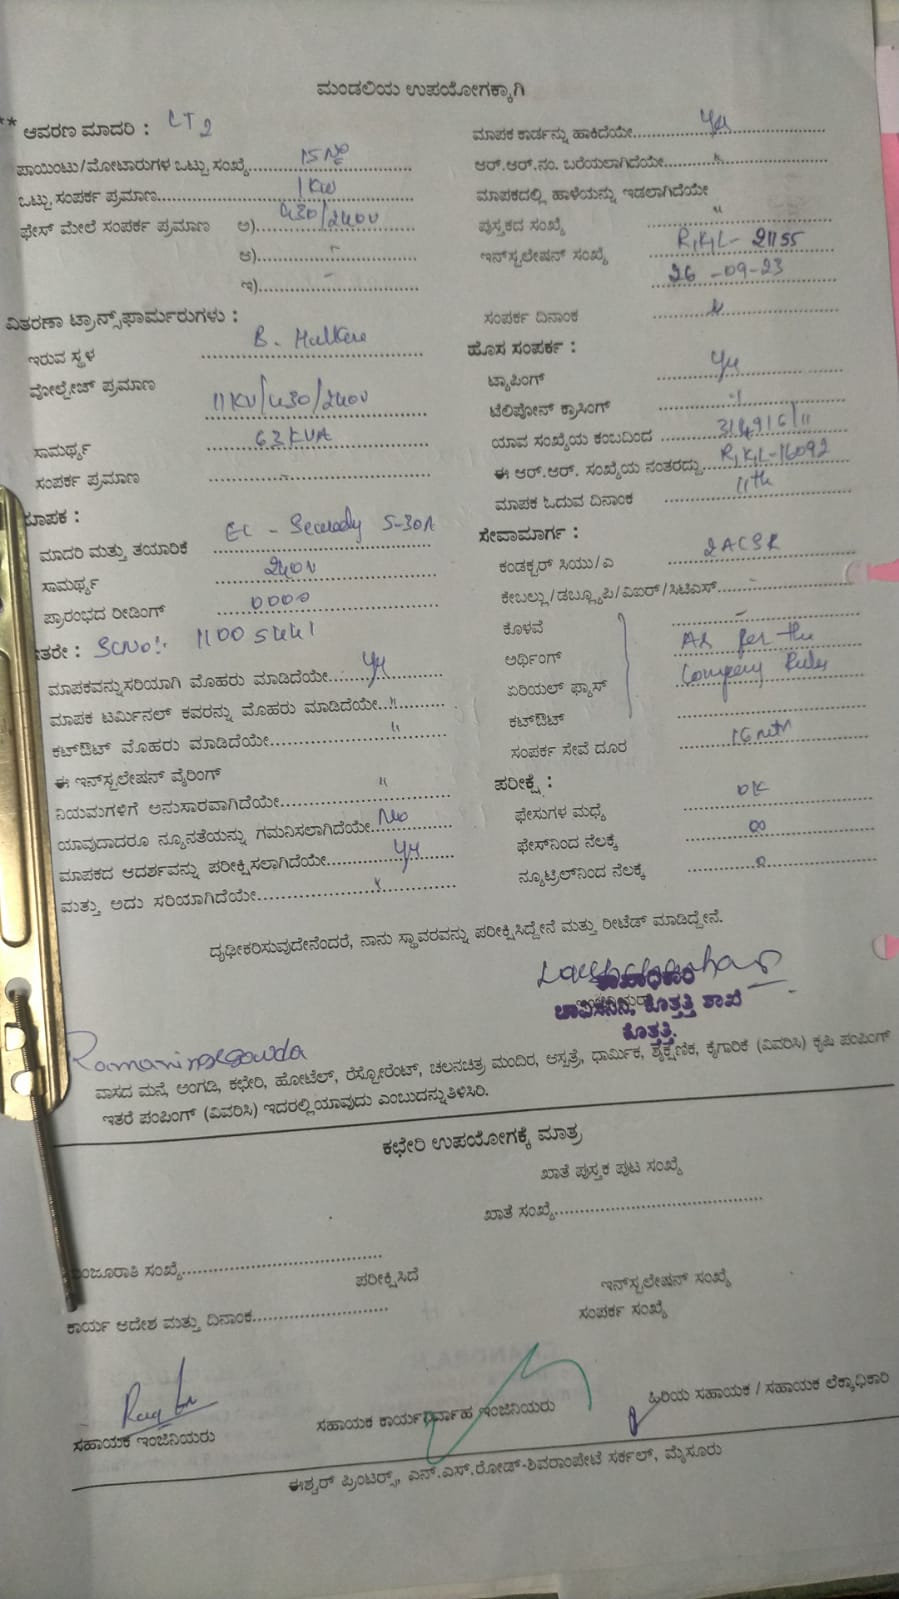 ಮಂಡಲಿಯ ಉಪಯೋಗಕ್ಕಾಗಿ
** ಆವರಣ ಮಾದರಿ : LT2
ಪಾಯಿಂಟು/ಮೋಟಾರುಗಳ ಒಟ್ಟು ಸಂಖ್ಯೆ 15 No
ಒಟ್ಟು ಸಂಪರ್ಕ ಪ್ರಮಾಣ 1 KW
ಫೇಸ್ ಮೇಲೆ ಸಂಪರ್ಕ ಪ್ರಮಾಣ ಅ) 430/240V
ಆ) -
ಇ) -
ವಿತರಣಾ ಟ್ರಾನ್ಸ್‌ಫಾರ್ಮರುಗಳು :
ಇರುವ ಸ್ಥಳ B. Hulkere
ವೋಲ್ಟೇಜ್ ಪ್ರಮಾಣ 11KV/430/240V
ಸಾಮರ್ಥ್ಯ 63KVA
ಸಂಪರ್ಕ ಪ್ರಮಾಣ -
ಮಾದರಿ ಮತ್ತು ತಯಾರಿಕೆ 5-30A
ಸಾಮರ್ಥ್ಯ 240V
ಪ್ರಾರಂಭದ ರೀಡಿಂಗ್ 0000
ಇತರೇ :
ಮಾಪಕವನ್ನು ಸರಿಯಾಗಿ ಮೊಹರು ಮಾಡಿದೆಯೇ
ಮಾಪಕ ಟರ್ಮಿನಲ್ ಕವರನ್ನು ಮೊಹರು ಮಾಡಿದೆಯೇ "
ಕಟ್‌ಔಟ್ ಮೊಹರು ಮಾಡಿದೆಯೇ "
ಈ ಇನ್‌ಸ್ಟಲೇಷನ್ ವೈರಿಂಗ್
ನಿಯಮಗಳಿಗೆ ಅನುಸಾರವಾಗಿದೆಯೇ "
ಯಾವುದಾದರೂ ನ್ಯೂನತೆಯನ್ನು ಗಮನಿಸಲಾಗಿದೆಯೇ No
ಮಾಪಕದ ಆದರ್ಶವನ್ನು ಪರೀಕ್ಷಿಸಲಾಗಿದೆಯೇ
ಮತ್ತು ಅದು ಸರಿಯಾಗಿದೆಯೇ
ಮಾಪಕ ಕಾರ್ಡನ್ನು ಹಾಕಿದೆಯೇ
ಆರ್.ಆರ್.ನಂ. ಬರೆಯಲಾಗಿದೆಯೇ
ಮಾಪಕದಲ್ಲಿ ಹಾಳೆಯನ್ನು ಇಡಲಾಗಿದೆಯೇ
ಪುಸ್ತಕದ ಸಂಖ್ಯೆ "
ಇನ್‌ಸ್ಟಲೇಷನ್ ಸಂಖ್ಯೆ 21155
26-09-23
ಸಂಪರ್ಕ ದಿನಾಂಕ
ಹೊಸ ಸಂಪರ್ಕ :
ಟ್ಯಾಪಿಂಗ್
ಟೆಲಿಫೋನ್ ಕ್ರಾಸಿಂಗ್
ಯಾವ ಸಂಖ್ಯೆಯ ಕಂಬದಿಂದ
ಈ ಆರ್.ಆರ್. ಸಂಖ್ಯೆಯ ನಂತರದ್ದು 16092
ಮಾಪಕ ಓದುವ ದಿನಾಂಕ 11th
ಸೇವಾಮಾರ್ಗ :
ಕಂಡಕ್ಟರ್ ಸಿಯು/ಎ 2ACSR
ಕೇಬಲ್ಲು/ಡಬ್ಲ್ಯೂಪಿ/ವಿಐರ್/ಸಿಟಿಎಸ್ -
ಕೊಳವೆ
ಅರ್ಥಿಂಗ್ As per the
ಏರಿಯಲ್ ಫ್ಯಾಸ್ Company Rules
ಕಟ್‌ಔಟ್
ಸಂಪರ್ಕ ಸೇವೆ ದೂರ 16 mtr
ಪರೀಕ್ಷೆ :
ಫೇಸುಗಳ ಮಧ್ಯೆ OK
ಫೇಸ್‌ನಿಂದ ನೆಲಕ್ಕೆ ∞
ನ್ಯೂಟ್ರಿಲ್‌ನಿಂದ ನೆಲಕ್ಕೆ
ದೃಢೀಕರಿಸುವುದೇನೆಂದರೆ, ನಾನು ಸ್ಥಾವರವನ್ನು ಪರೀಕ್ಷಿಸಿದ್ದೇನೆ ಮತ್ತು ರೀಟೆಡ್ ಮಾಡಿದ್ದೇನೆ.
ಶಾಖಾಧಿಕಾರಿ
ಚಾವಿಸನಿನಿ, ಕೊತ್ತತ್ತಿ ಶಾಖೆ
ಕೊತ್ತತ್ತಿ.
ವಾಸದ ಮನೆ, ಅಂಗಡಿ, ಕಛೇರಿ, ಹೋಟೆಲ್, ರೆಸ್ಟೋರೆಂಟ್, ಚಲನಚಿತ್ರ ಮಂದಿರ, ಆಸ್ಪತ್ರೆ, ಧಾರ್ಮಿಕ, ಶೈಕ್ಷಣಿಕ, ಕೈಗಾರಿಕೆ (ವಿವರಿಸಿ) ಕೃಷಿ ಪಂಪಿಂಗ್
ಇತರೆ ಪಂಪಿಂಗ್ (ವಿವರಿಸಿ) ಇದರಲ್ಲಿ ಯಾವುದು ಎಂಬುದನ್ನು ತಿಳಿಸಿರಿ.
ಕಛೇರಿ ಉಪಯೋಗಕ್ಕೆ ಮಾತ್ರ
ಖಾತೆ ಪುಸ್ತಕ ಪುಟ ಸಂಖ್ಯೆ
ಖಾತೆ ಸಂಖ್ಯೆ
ಮಂಜೂರಾತಿ ಸಂಖ್ಯೆ
ಪರೀಕ್ಷಿಸಿದೆ
ಇನ್‌ಸ್ಟಲೇಷನ್ ಸಂಖ್ಯೆ
ಕಾರ್ಯ ಆದೇಶ ಮತ್ತು ದಿನಾಂಕ
ಸಂಪರ್ಕ ಸಂಖ್ಯೆ
ಸಹಾಯಕ ಇಂಜಿನಿಯರು
ಸಹಾಯಕ ಕಾರ್ಯನಿರ್ವಾಹ ಇಂಜಿನಿಯರು
ಹಿರಿಯ ಸಹಾಯಕ / ಸಹಾಯಕ ಲೆಕ್ಕಾಧಿಕಾರಿ
ಈಶ್ವರ್ ಪ್ರಿಂಟರ್ಸ್, ಎನ್.ಎಸ್.ರೋಡ್-ಶಿವರಾಂಪೇಟೆ ಸರ್ಕಲ್, ಮೈಸೂರು